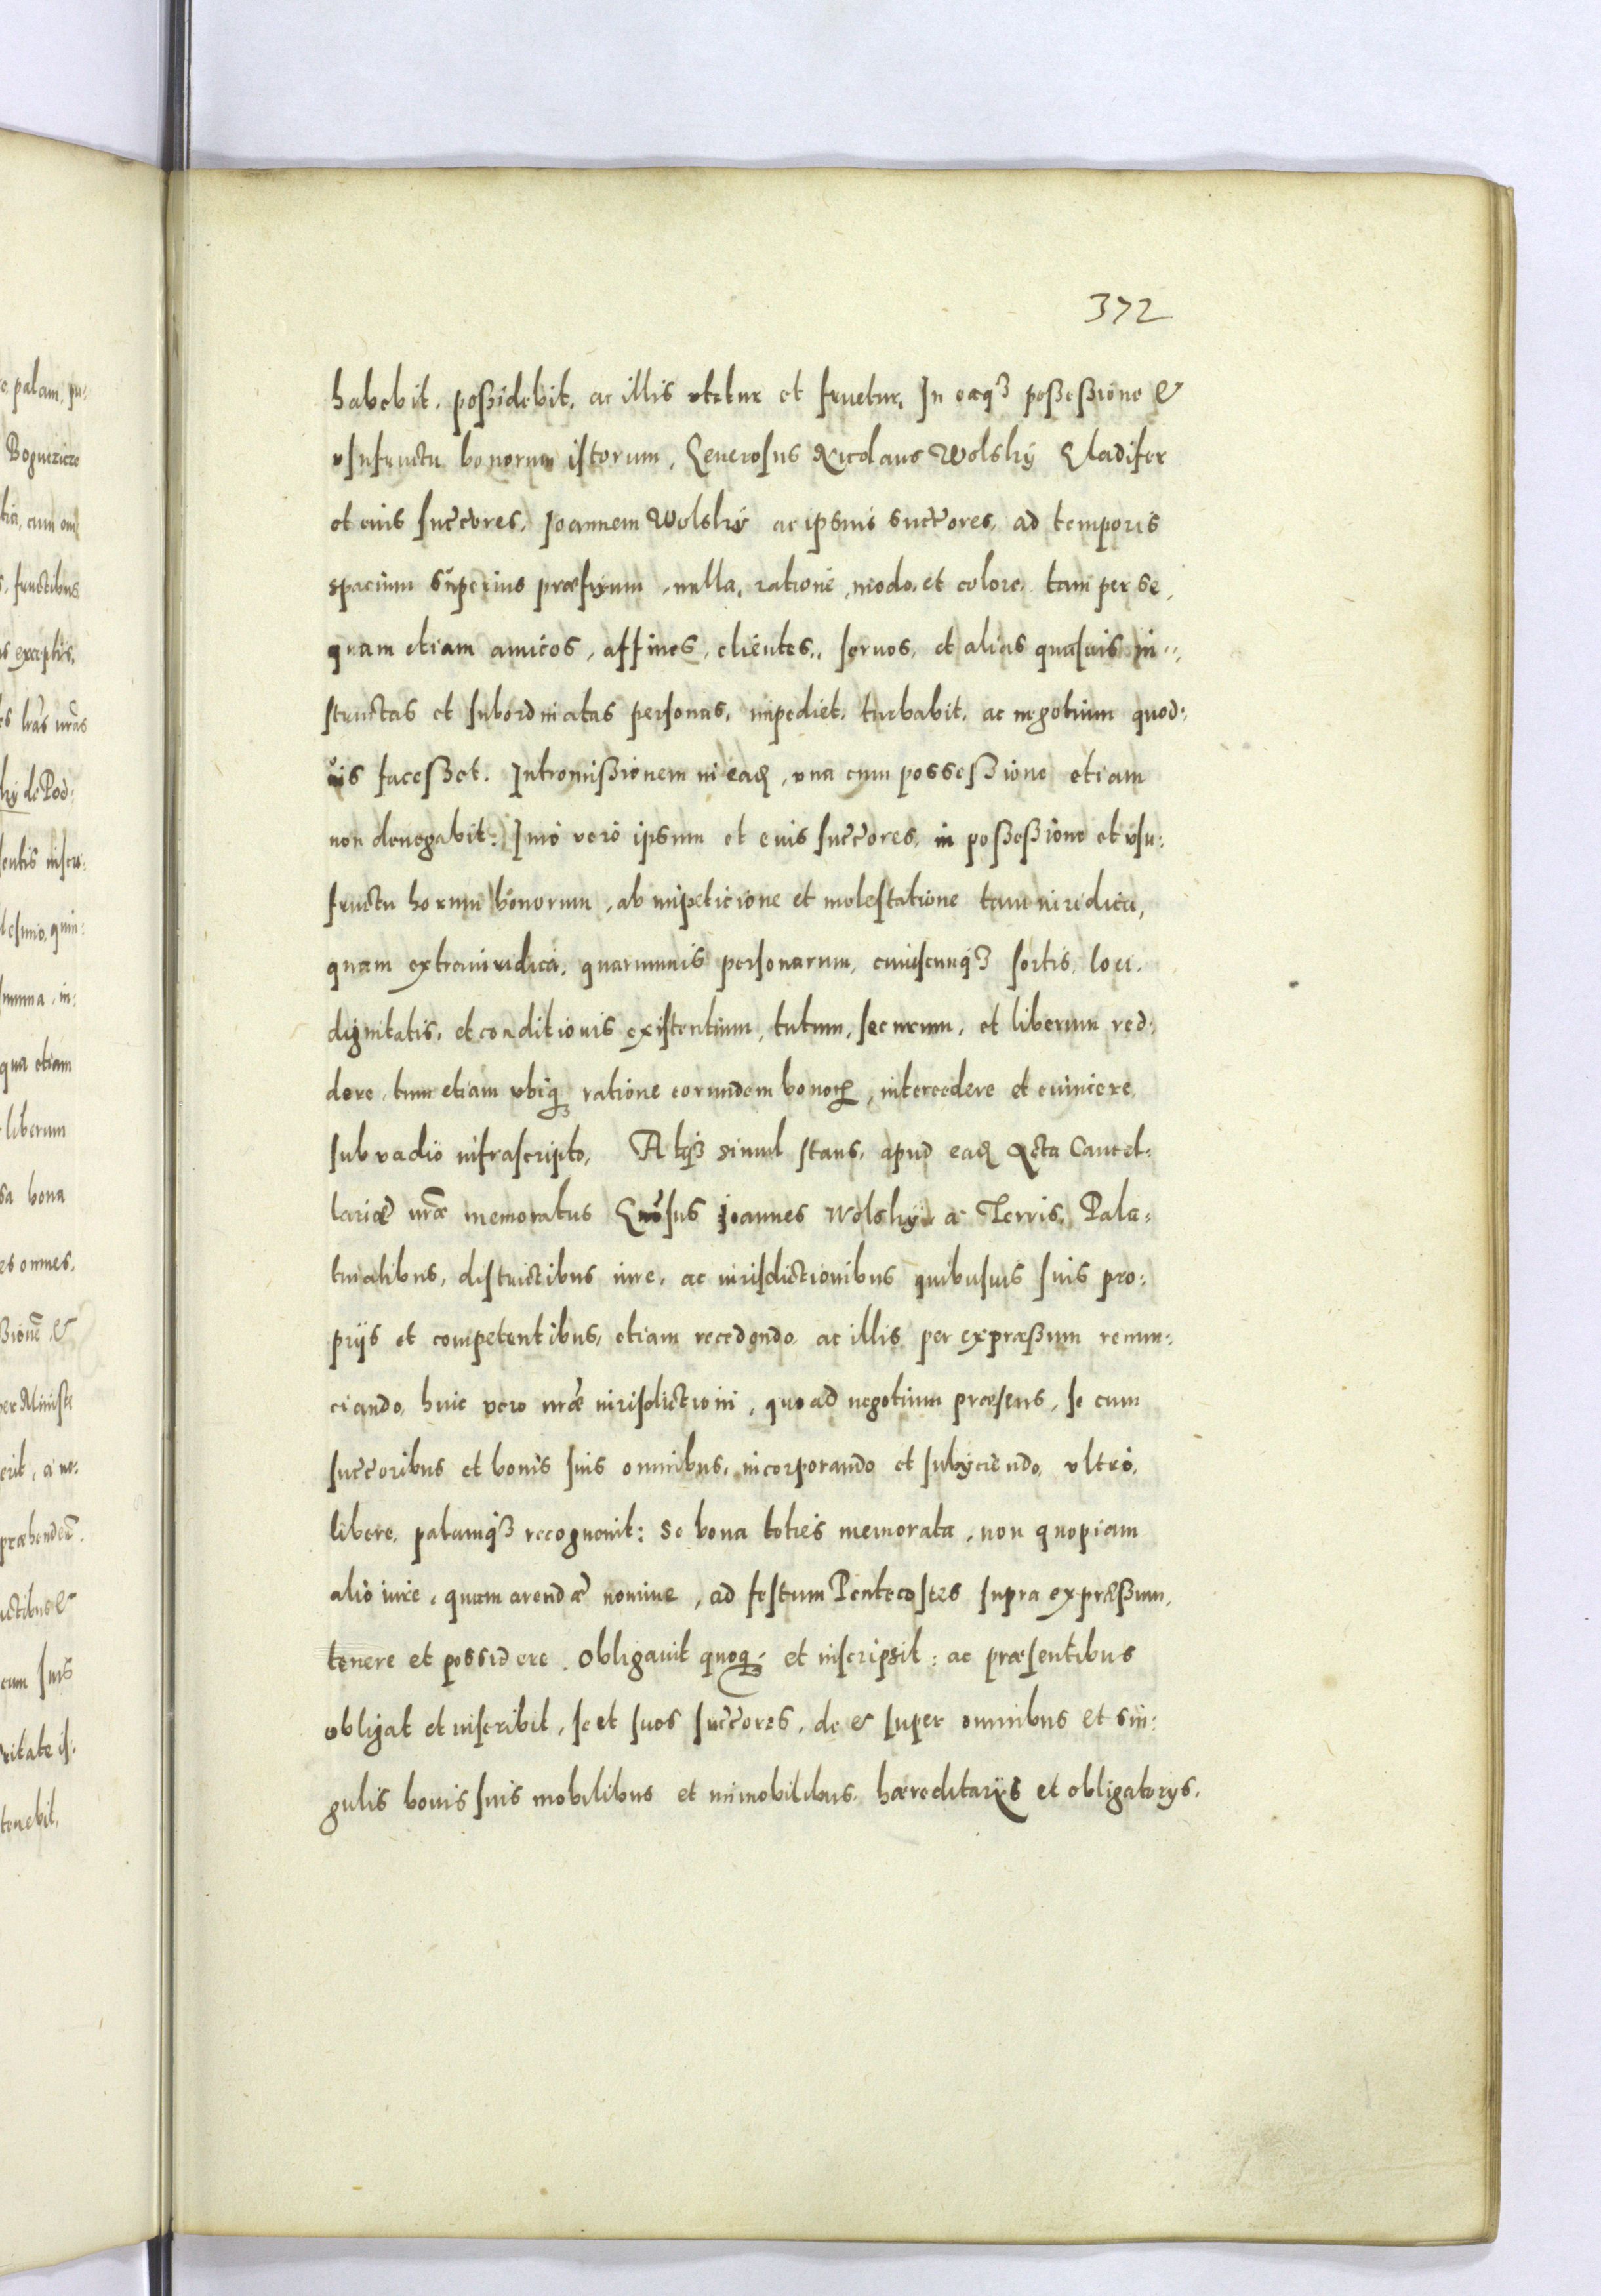 372
habebit, poßidebit, ac illis utetur et fruetur, In eaqꝫ poßeßione &
usufructu bonorum istorum, Generosus Nicolaus Wolsky Gladifer
et eius succores, Joannem Wolsky ac ipsius succores, ad temporis
spacium superius præfixum, nulla, ratione, modo, et colore, tam per se,
quam etiam amicos, affines, clientes, seruos, et alias quasuis in=
structas et subordinatas personas, impediet, turbabit, ac negotium quod=
uis faceßet. Intromißionem in eaꝗ, una cum posseßione etiam
non denegabit: Imo vero ipsum et eius succores, in poßeßione et usu=
fructu horum bonorum, ab impeticione et molestatione tam iuridica,
quam extraiuridica, quarumuis personarum, cuiuscunqꝫ sortis, loci,
dignitatis, et conditionis existentium, tutum, securum, et liberum red=
dere, tum etiam ubiqꝫ ratione eorundem bonoꝝ, intercedere et euincere,
sub vadio infrascripto, Atqꝫ simul stans, apud eaꝗ Acta Cancel=
lariæ nr̃æ memoratus Gn̄rosus Joannes Wolsky a Terris, Pala=
tinatibus, districtibus iure, ac iurisdictionibus quibusuis suis pro=
prijs et competentibus, etiam recedendo, ac illis per expræßum renun=
ciando, huic vero nr̃æ iurisdictioni, quo ad negotium præsens, se cum
succoribus et bonis suis omnibus, incorporando et subijciendo, ultro,
libere, palamqꝫ recognouit: Se bona toties memorata, non quopiam
alio iure, quam arendæ nomine, ad festum Pentecostes supra expræßum,
tenere et possidere. Obligauit quoqꝫ et inscripsit: ac præsentibus
obligat et inscribit, se et suos succores, de & super omnibus et sin=
gulis bonis suis mobilibus et immobilibus, hæreditarijs et obligatorijs,